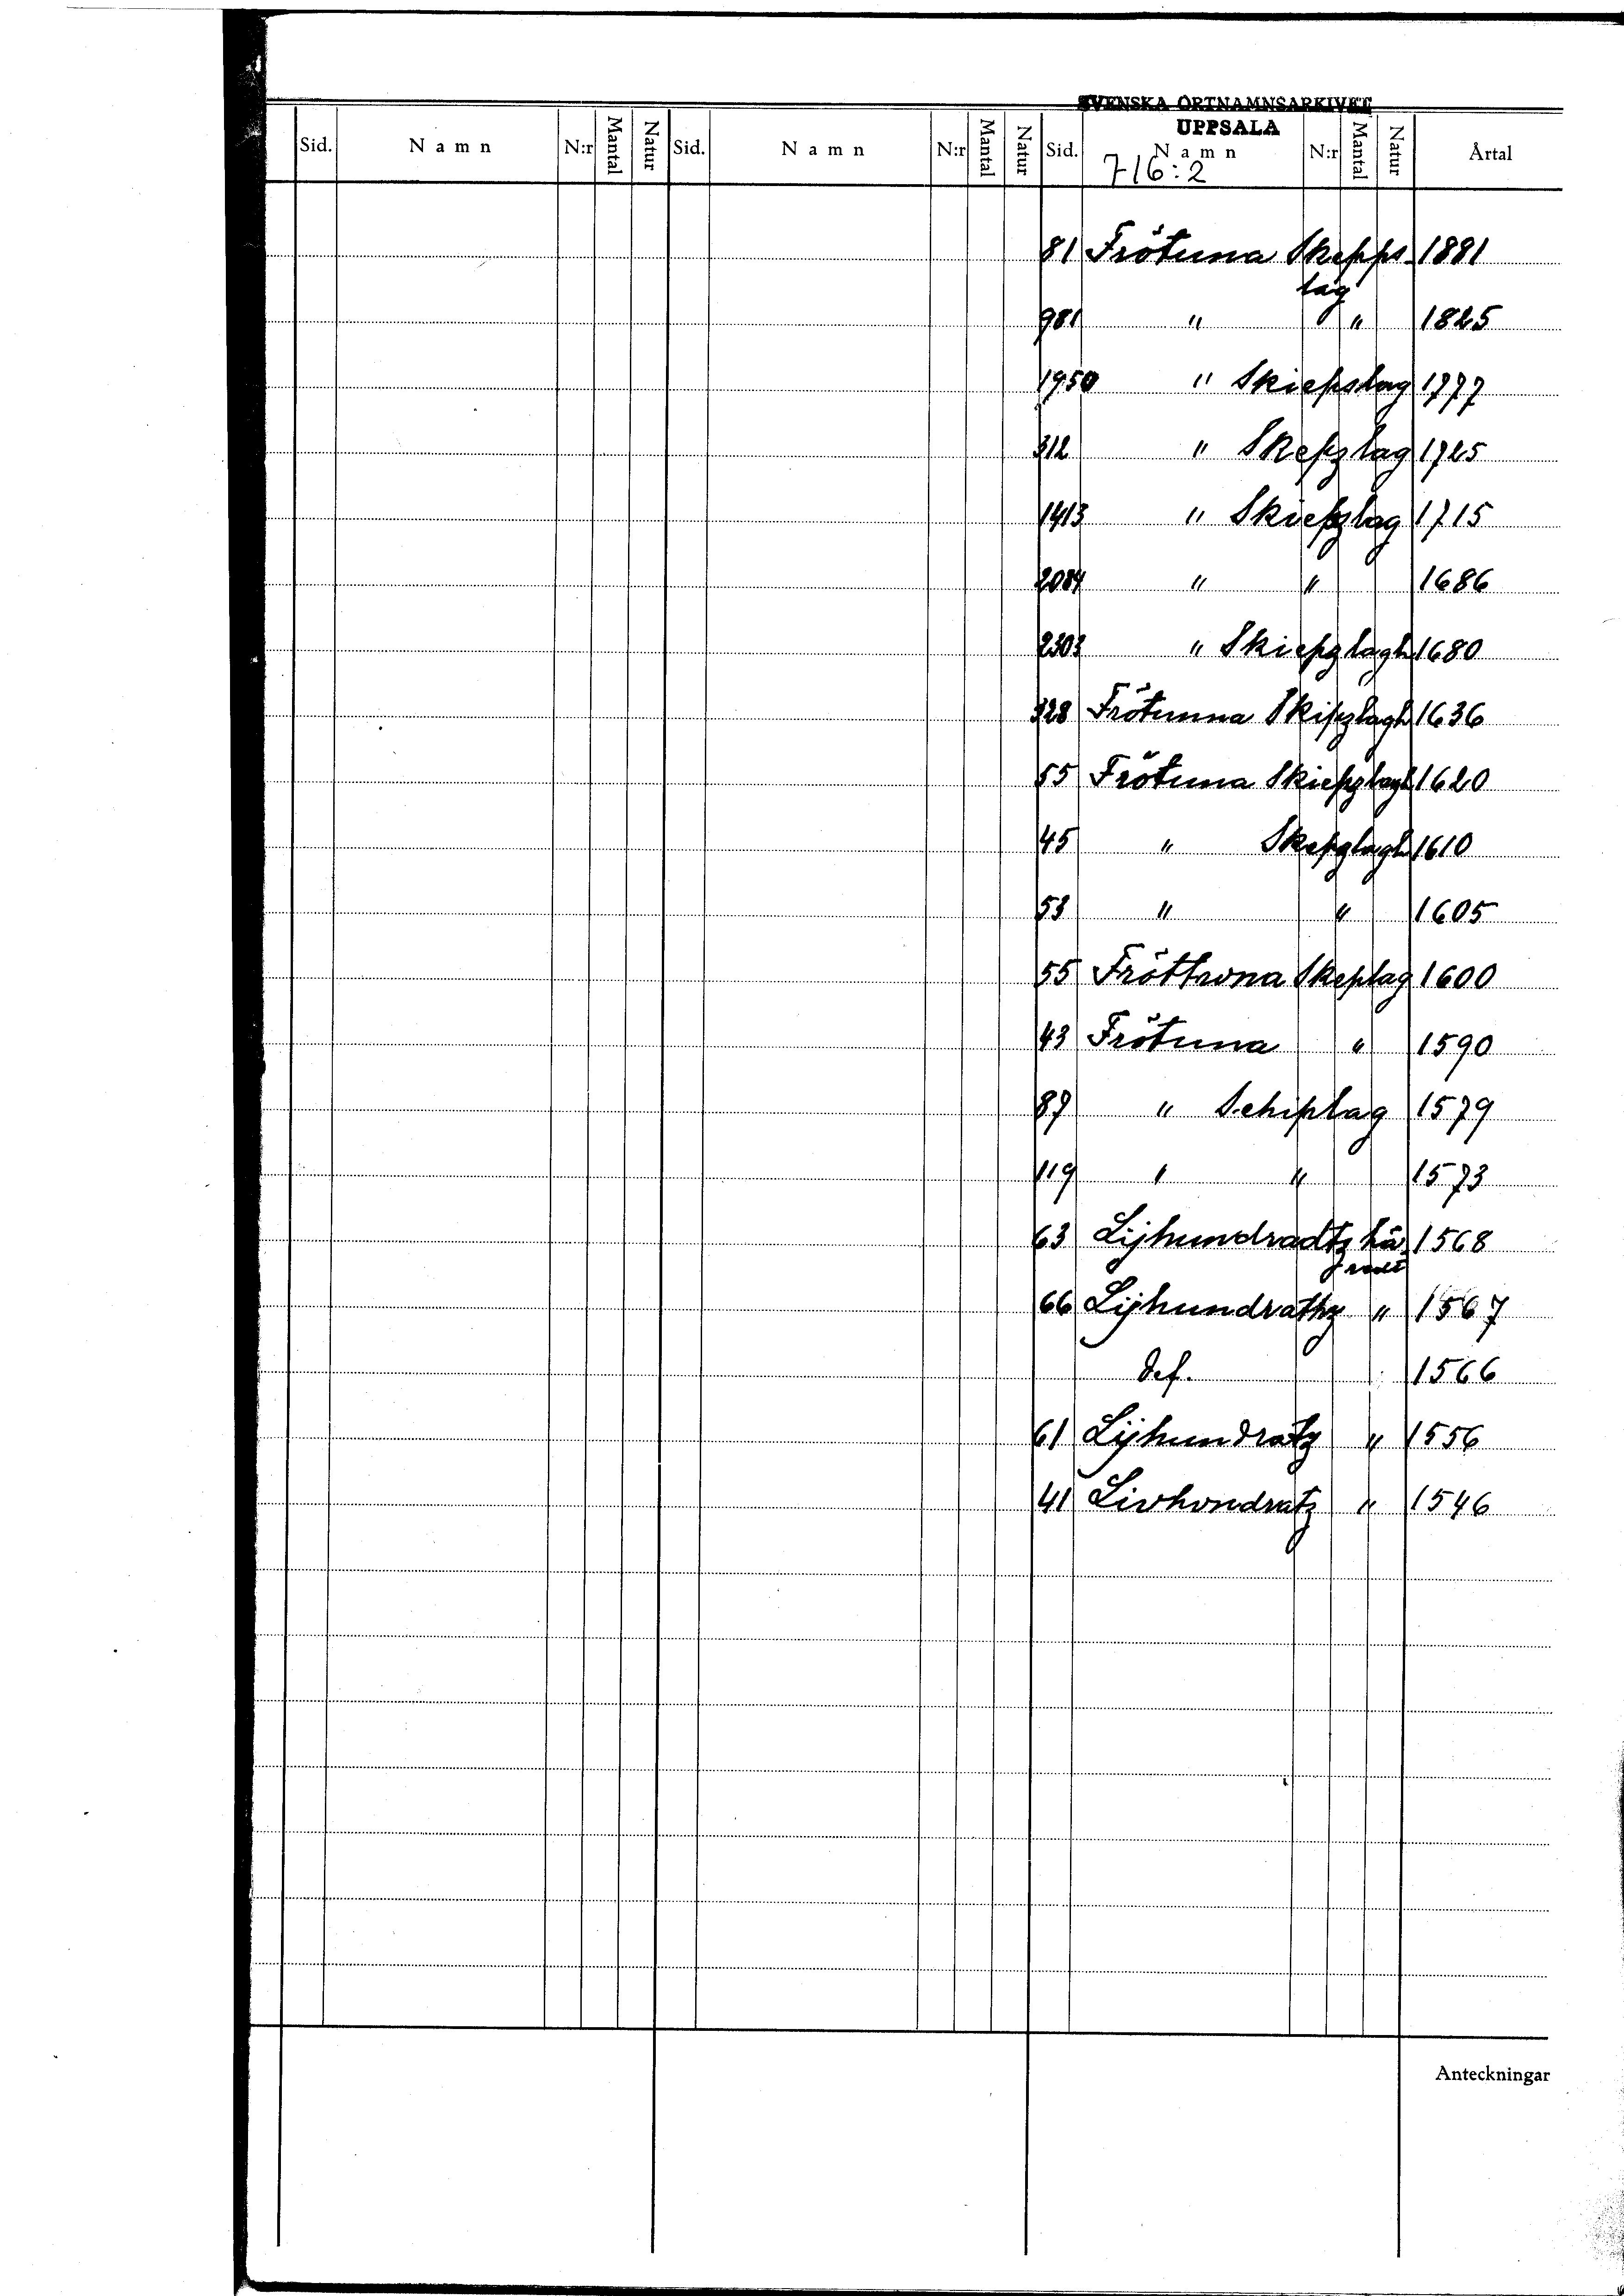 SVENSKA ORTNAMNSARKIVET
UPPSALA
Sid. Namn N:r Mantal Natur Sid. Namn N:r Mantal Natur Sid. Namn N:r Mantal Natur Årtal
716:2
81 Frötuna Skepps- 1881
lag
981 " " 1825
1950 " Skiepslag 1777
312 " Skepzlag 1725
1413 " Skiepzlag 1715
2084 " " 1686
2303 " Skiepzlagh 1680
328 Frötunna Skipzlagh 1636
55 Frötuna Skiepzlagh 1620
45 " Skepzlagh 1610
53 " " 1605
55 Fröttwna Skeplag 1600
43 Frötuna " 1590
87 " Schiplag 1579
119 " " 1573
63 Lijhundradtz hä- 1568
radt
66 Lijhundrathz " 1567
Def. 1566
61 Lijhundratz " 1556
41 Livhvndratz " 1546
Anteckningar